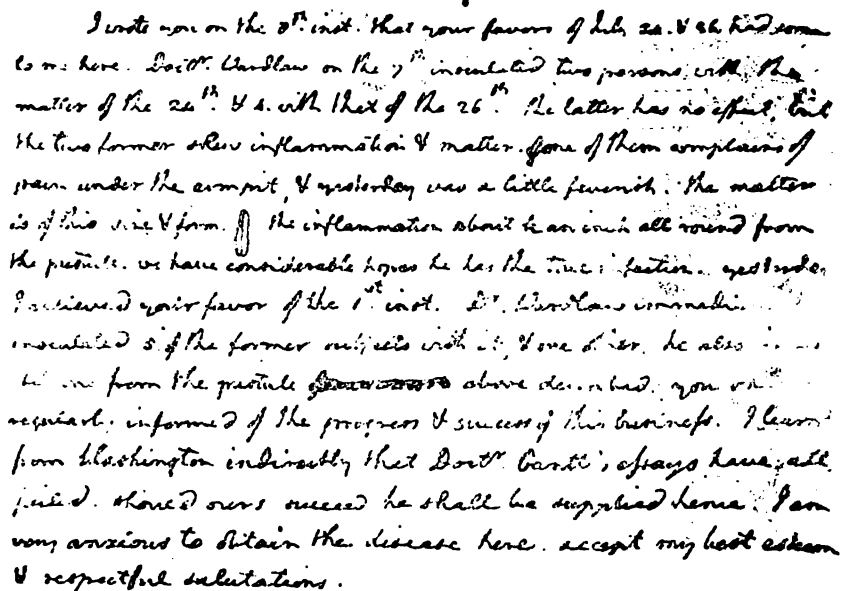 I wrote you on the 8th inst. that your favors of July 24. & 26 had come
to me here. Doctr. Wardlaw on the 7th inoculated two persons with the
matter of the 24th. & 4. with that of the 26th the latter has no effect, but
the two former shew inflammation & matter. one of them complains of
pain under the armpit, & yesterday was a little feverish. the matter
is of this size & form. the inflammation about ½ an inch all round from
the pustule. we have considerable hopes he has the true infection. yesterday
I recieved your favor of the 1st inst. Dr. Wardlaw immedi
inoculated 5 of the former subjects with it, & one other, he also
one from the pustule above described. you
regularly informed of the progress & success of this business. I learn
from Washington indirectly that Doctr. Gantt's essays have all
failed. should ours succeed he shall be supplied hence. I am
very anxious to obtain the disease here. accept my best esteem
& respectful salutations.